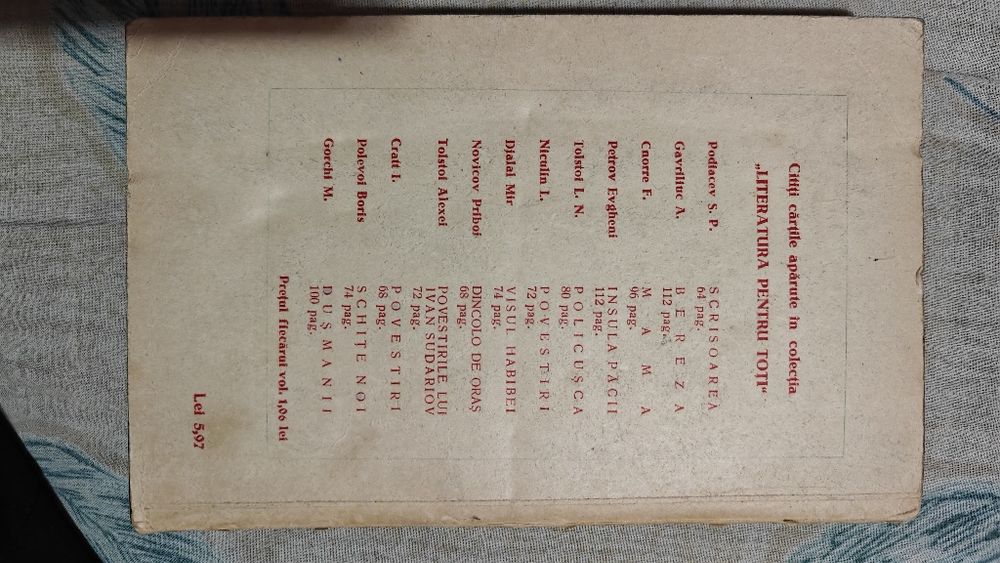 Citiți cărțile apărute în colecția
„LITERATURA PENTRU TOȚI“
Podiacev S. P. SCRISOAREA
64 pag.
Gavriliuc A. BEREZA
112 pag.
Cnorre F. MAMA
96 pag.
Petrov Evgheni INSULA PĂCII
112 pag.
Tolstoi L. N. POLICUȘCA
80 pag.
Niculin L. POVESTIRI
72 pag.
Djalal Mir VISUL HABIBEI
74 pag.
Novicov Priboi DINCOLO DE ORAȘ
68 pag.
Tolstoi Alexei POVESTIRILE LUI
IVAN SUDARIOV
72 pag.
Cratt I. POVESTIRI
68 pag.
Polevoi Boris SCHIȚE NOI
74 pag.
Gorchi M. DUȘMANII
100 pag.
Prețul fiecărui vol. 1,06 lei
Lei 5,97